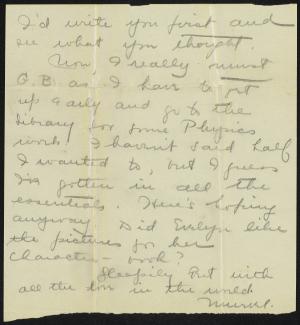 I'd write you first and
see what you thought.
Now, I really must
G.B. as I have to get
up early and go to the
library for some Physics
work. I haven't said half
I wanted to, but I guess
I've gotten in all the
essentials. Here's hoping
anyway. Did Evelyn like
the pictures for her
Character-book?
Sleepily But with
all the love in the world
Muriel.